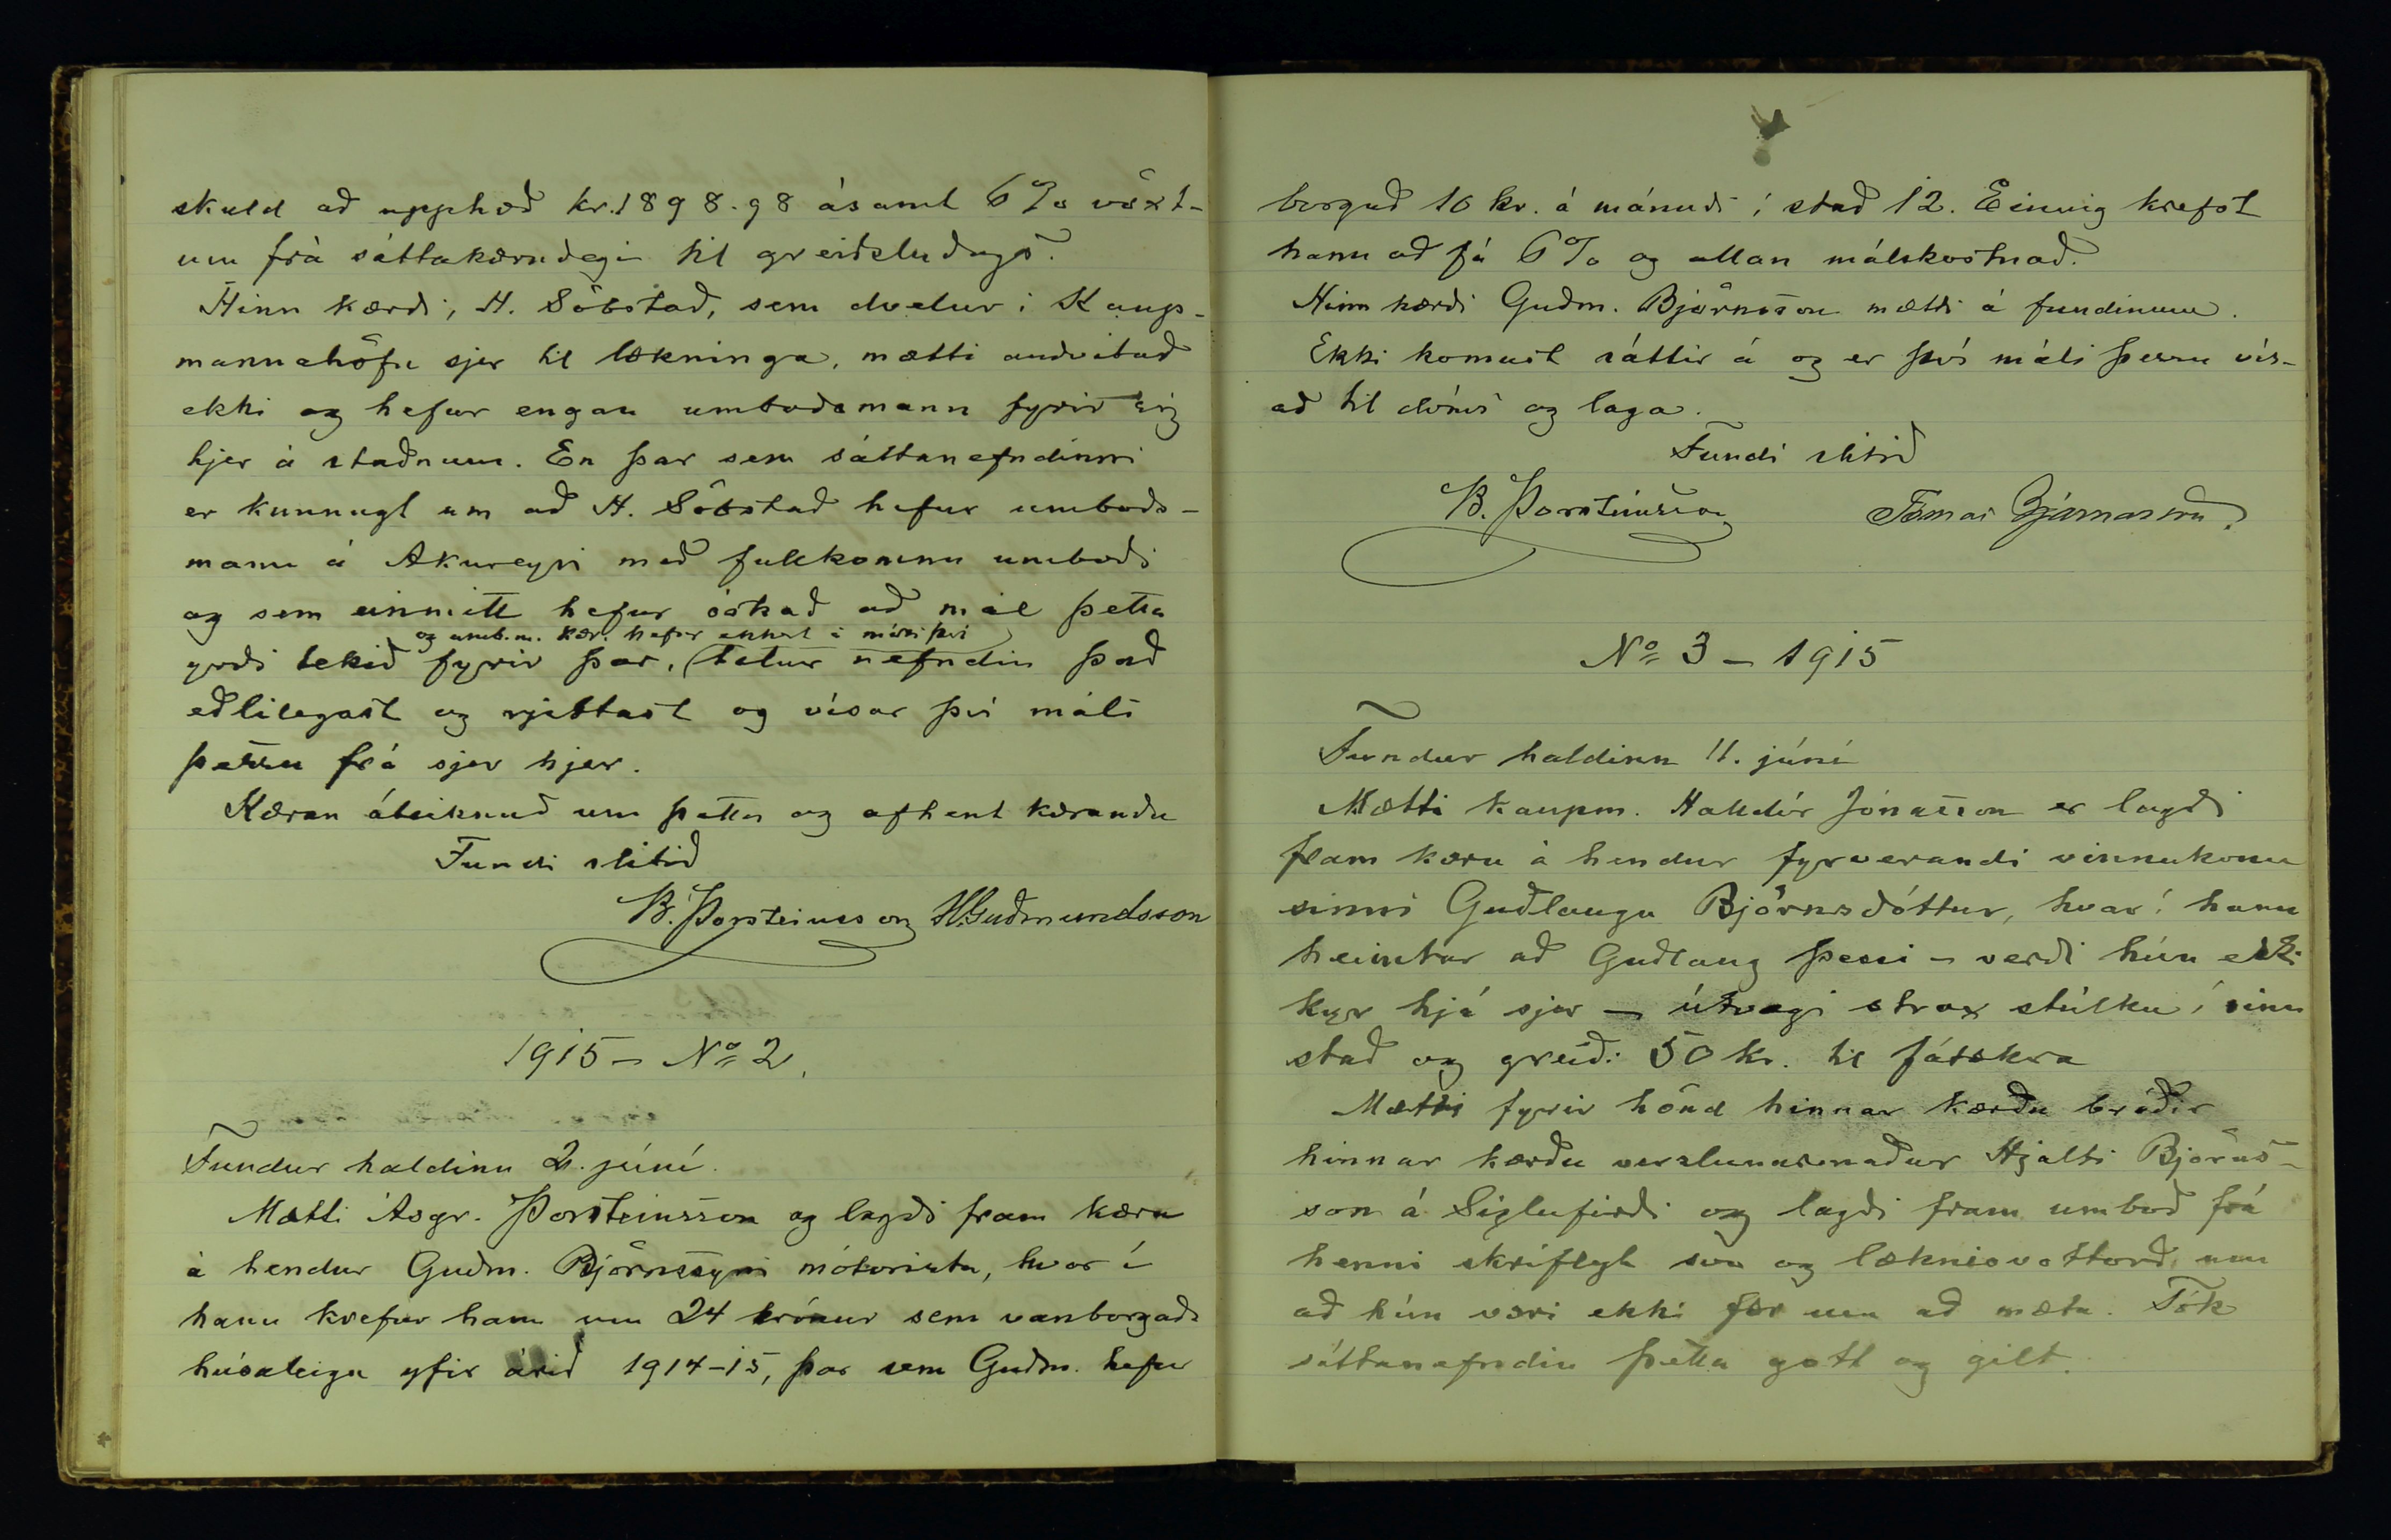 skuld að upphæð kr. 1898.98 ásamt 6% vöxt-
um frá sáttakærudegi til greiðsludags.
Hinn kærði, H. Söbstað, sem dvelur í Kaup-
mannahöfn sjer til lækninga, mætti auðvitað
ekki og hefur engan umboðsmann fyrir sig
hjer á staðnum. En þar sem sáttanefndinni
er kunnugt um að H. Söbstað hefur umboðs-
mann á Akureyri með fullkomnu umboði
og sem einmitt hefur óskað að mál þetta
og umb.m. kær. hefur ekkert á móti því
yrði tekið fyrir þar, telur nefndin það
eðlilegast og rjettast og vísar því máli
þessu frá sjer hjer.
Kæran áteiknuð um þetta og afhent kæranda
Fundi slitið
B. Þorsteinsson H. Guðmundsson
1915 - No 2.
Fundur haldinn 2. júní.
Mætti Ásgr. Þorsteinsson og lagði fram kæru
á hendur Guðm. Björnssyni mótorista, hvar í
hann krefur hann um 24 krónur sem vanborgaða
húsaleigu yfir árið 1914-15, þar sem Guðm. hefur
borgað 10 kr. á mánuði í stað 12. Einnig krefst
hann að fá 6% og allan málskostnað.
Hinn kærði Guðm. Björnsson mætti á fundinum.
Ekki komust sáttir á og er því máli þessu vís-
að til dóms og laga.
Fundi slitið
B. Þorsteinsson Tómas Bjarnason.
No 3 - 1915
Fundur haldinn 11. júní
Mætti kaupm. Halldór Jónasson er lagði
fram kæru á hendur fyrverandi vinnukonu
sinni Guðlaugu Björnsdóttur, hvar í hann
heimtar að Guðlaug þessi - verði hún ekki
kyr hjá sjer - útvegi strax stúlku í sinn
stað og greiði 50 kr. til fátækra
Mætti fyrir hönd hinnar kærðu bróðir
hinnar kærðu verslunarmaður Hjalti Björns-
son á Siglufirði og lagði fram umboð frá
henni skriflegt svo og læknisvottorð um
að hún væri ekki fær um að mæta. Tók
sáttanefndin þetta gott og gilt.